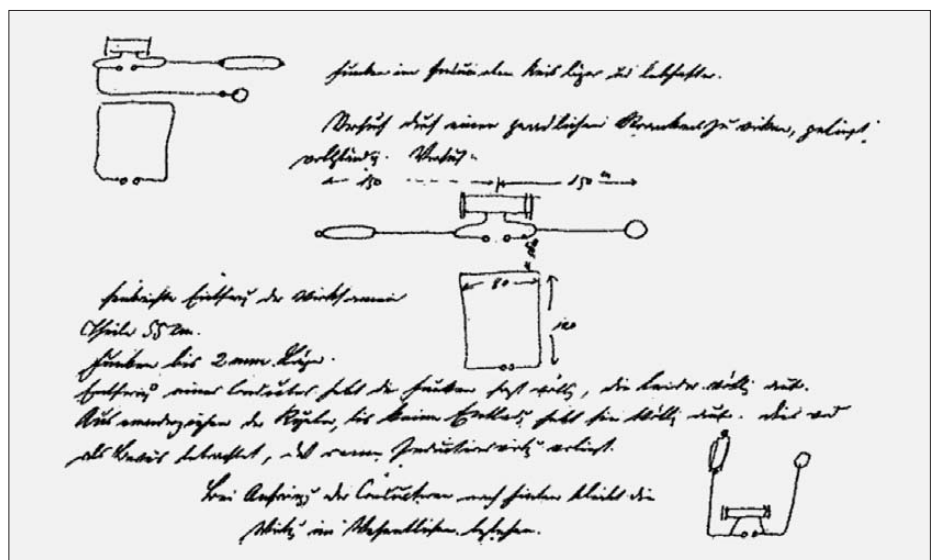 Funken im secundären Kreis länger und lebhafter.
Versuch durch einen zu wirken, gelingt
vollständig. Versuch:
150 150
80
Entfernung der wirksamen
Theile 55 cm.
120
Funken bis 2 mm Länge.
Entfernung eines Conductors hebt die Funken fast völlig, die beider völlig auf.
Auseinanderziehen der Kugeln, bis keine Entladung, hebt sie völlig auf. Dies wird
als Beweis betrachtet, daß reine Inductionswirkung vorliegt.
Bei Anfügung der Conductoren nach hinten bleibt die
Wirkung im Wesentlichen bestehen.